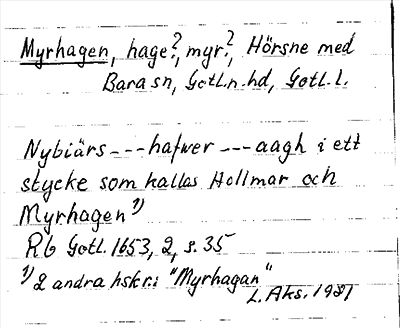 Myrhagen, hage?, myr?, Hörsne med
Bara sn, Gotl.n. hd, Gotl. l.
Nybiärs --- hafwer --- aagh i ett
stycke som kallas Hollmar och
Myrhagen 1)
Rb Gotl. 1653, 2, s. 35
1) 2 andra hskr.: "Myrhagan"
L. Aks. 1981